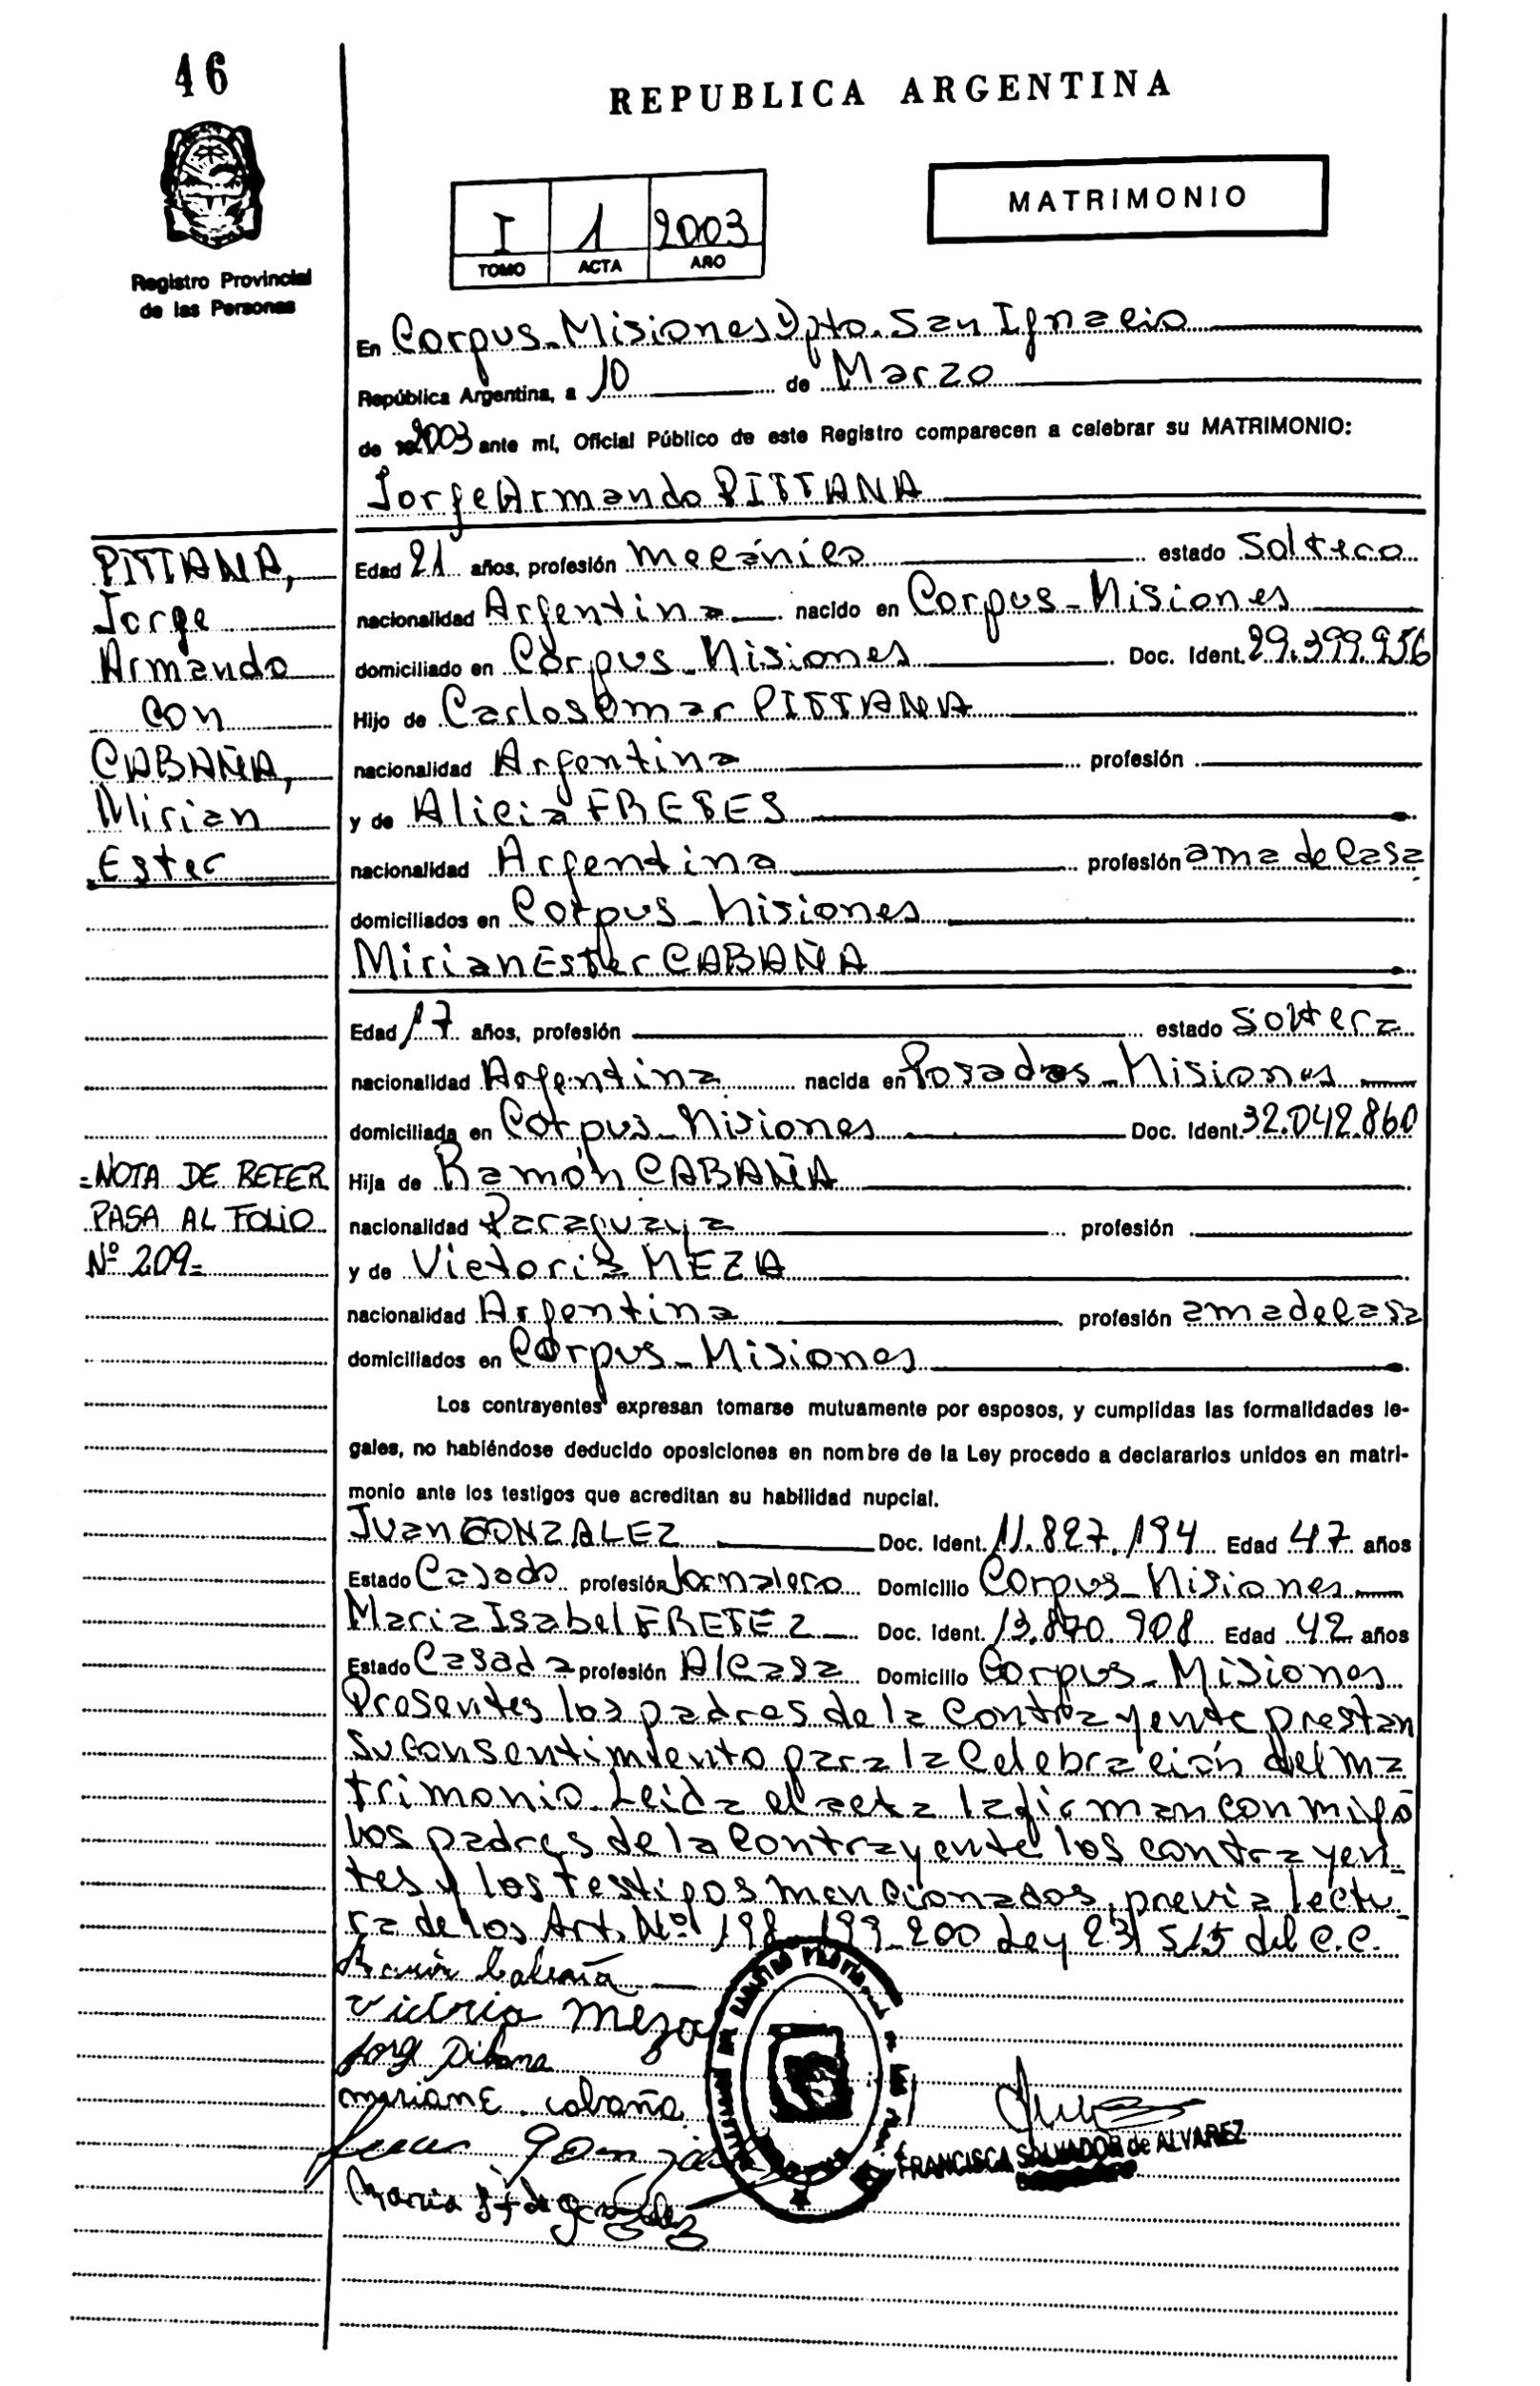 46
REPUBLICA ARGENTINA
MATRIMONIO
I 1 2003
TOMO ACTA AÑO
Registro Provincial
de las Personas
En Corpus-Misiones Dpto. San Ignacio
República Argentina, a 10 de Marzo
de 2003 ante mí, Oficial Público de este Registro comparecen a celebrar su MATRIMONIO:
Jorge Armando PITTANA
PITTANA,
Jorge
Armando
con
CABAÑA,
Mirian
Ester
Edad 21 años, profesión mecánico estado Soltero
nacionalidad Argentina nacido en Corpus-Misiones
domiciliado en Corpus-Misiones Doc. Ident. 29.399.956
Hijo de Carlos Omar PITTANA
nacionalidad Argentina profesión
y de Alicia FRETES
nacionalidad Argentina profesión ama de casa
domiciliados en Corpus-Misiones
Mirian Ester CABAÑA
Edad 17 años, profesión estado Soltera
nacionalidad Argentina nacida en Posadas-Misiones
domiciliada en Corpus-Misiones Doc. Ident. 32.042.860
=NOTA DE REFER
PASA AL FOLIO
Nº 209=
Hija de Ramón CABAÑA
nacionalidad Paraguaya profesión
y de Victoria MEZA
nacionalidad Argentina profesión ama de casa
domiciliados en Corpus-Misiones
Los contrayentes expresan tomarse mutuamente por esposos, y cumplidas las formalidades le-
gales, no habiéndose deducido oposiciones en nombre de la Ley procedo a declararlos unidos en matri-
monio ante los testigos que acreditan su habilidad nupcial.
Juan GONZALEZ Doc. Ident. 11.827.194 Edad 47 años
Estado Casado profesión Jornalero Domicilio Corpus-Misiones
Maria Isabel FRETEZ Doc. Ident. 13.870.908 Edad 42 años
Estado Casada profesión A/casa Domicilio Corpus-Misiones
Presentes los padres de la contrayente prestan
su consentimiento para la Celebración del ma
trimonio. Leida el acta la firman conmigo
los padres de la contrayente los contrayen
tes y los testigos mencionados, previa lectu
ra de los Art. Nº 198-199-200 Ley 23 515 del C.C.
Ramón Cabaña
Victoria Meza
Jorge Pitana
Mirian E. Cabaña
Juan Gonzalez
Maria de Gonzalez
FRANCISCA SALVADOR de ALVAREZ